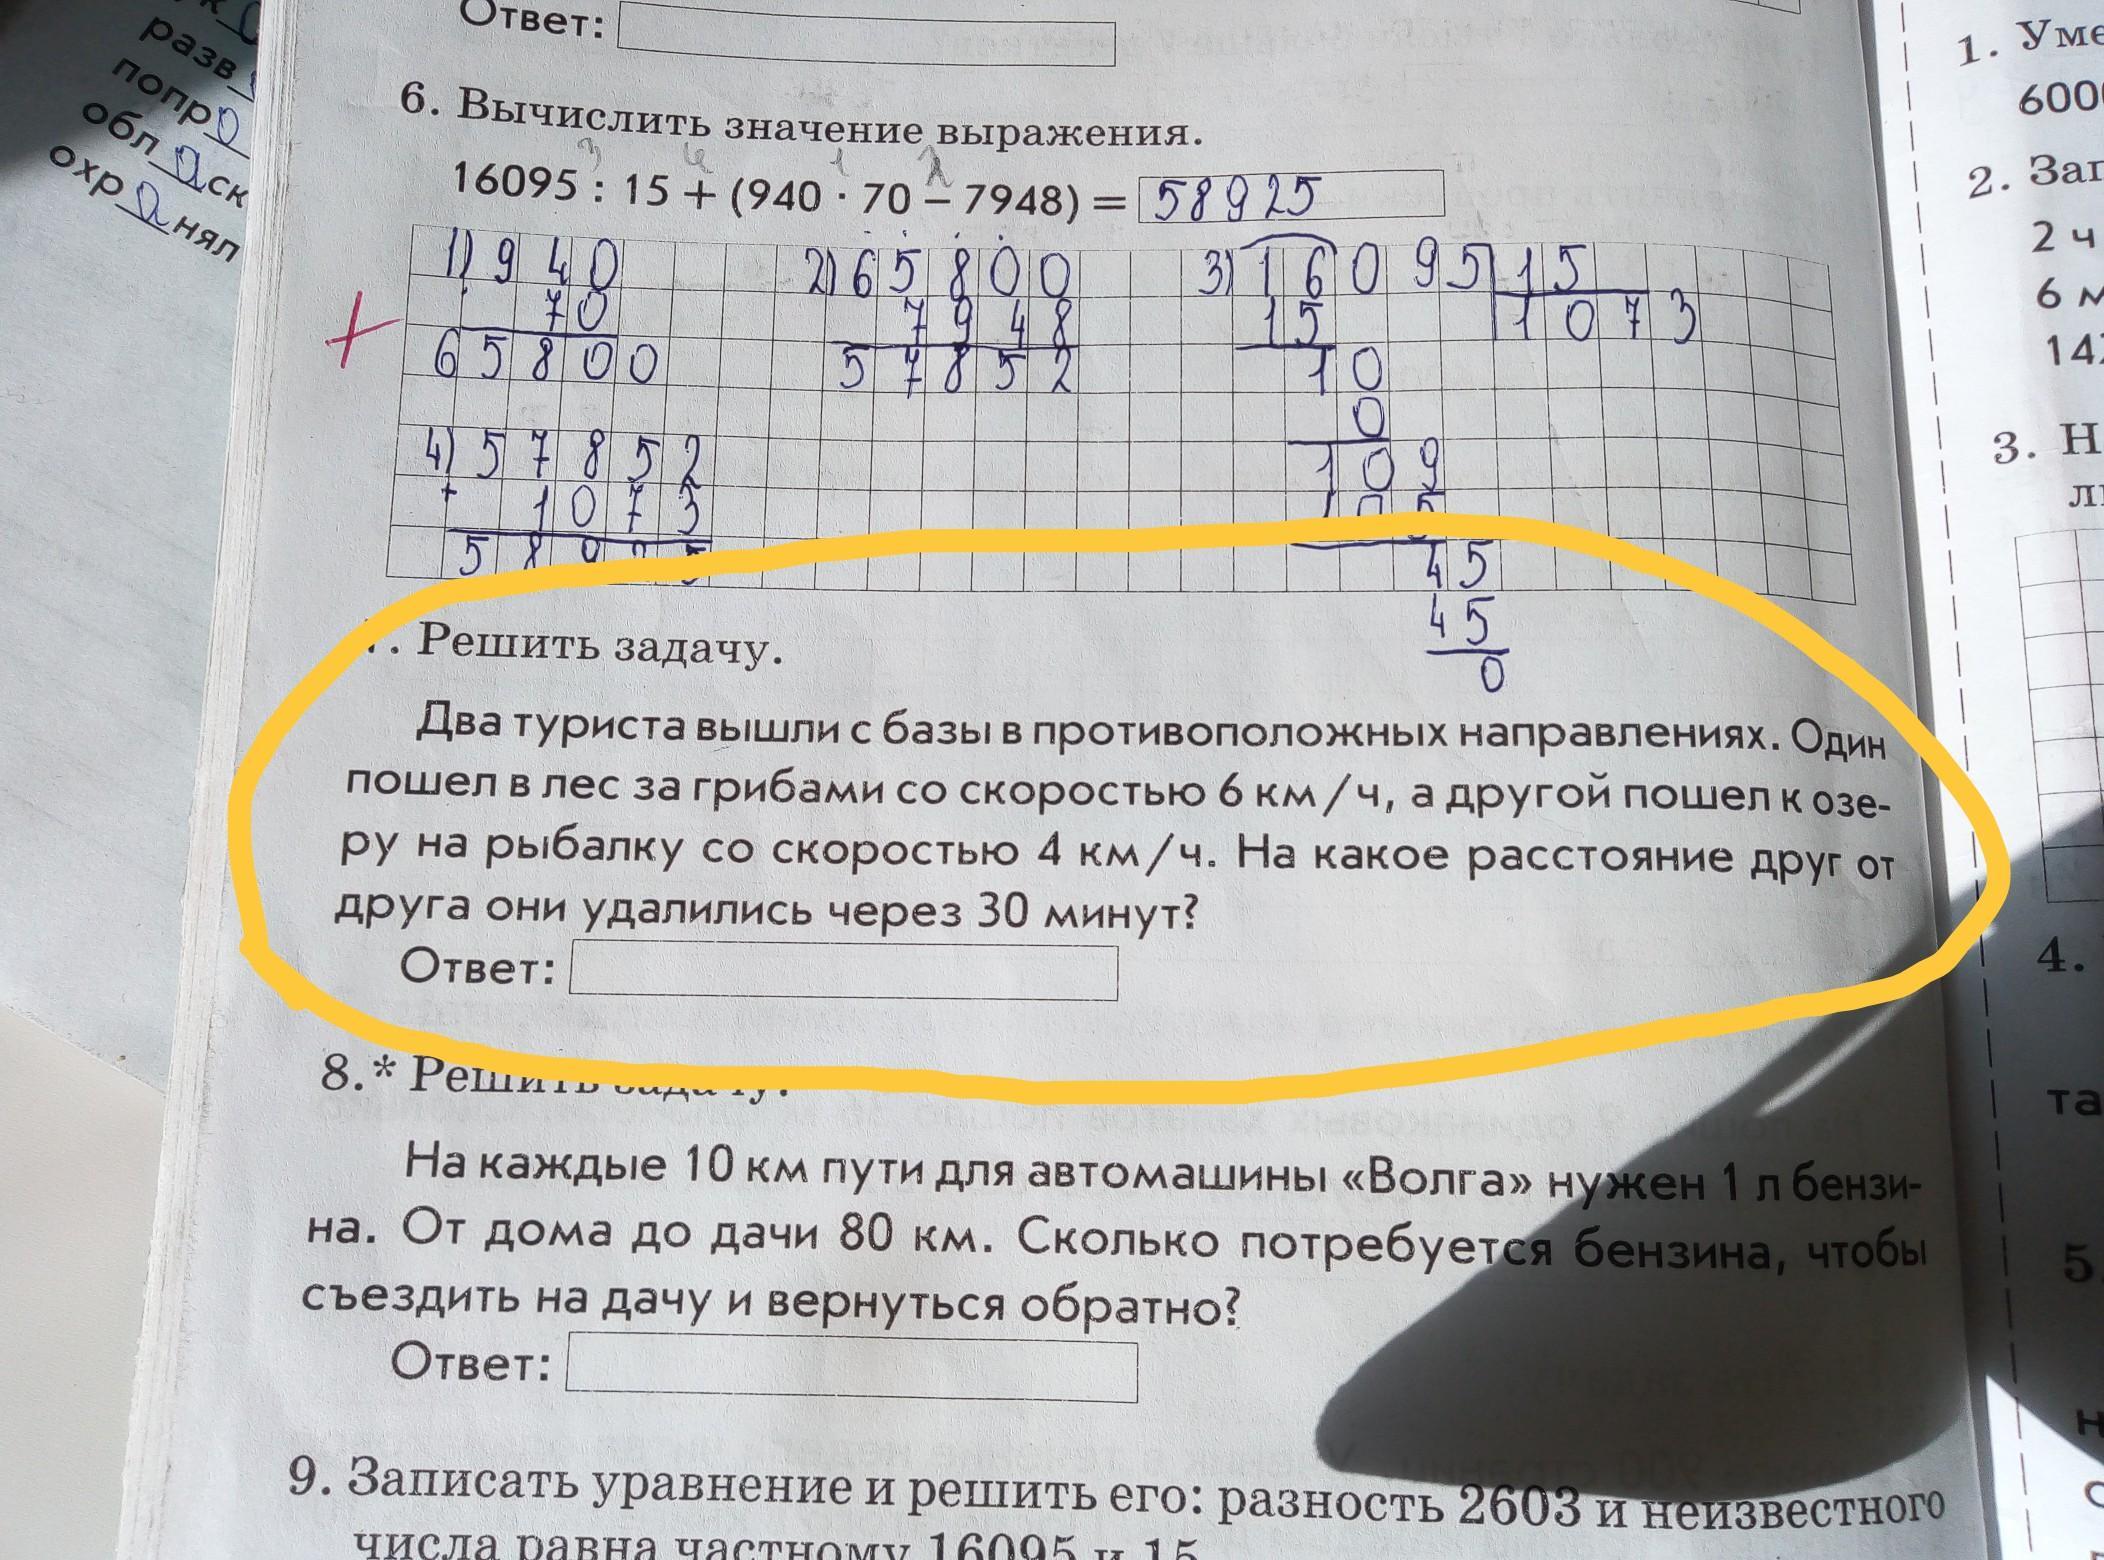 разв
попр о
обл а ск
охр а нял
Ответ:
6. Вычислить значение выражения.
3 4 1 2
16095 : 15 + (940 · 70 – 7948) = 58925
1) 940
70
65800
2) 65800
7948
57852
3) 16095 15
15 1073
10
0
109
105
45
45
0
4) 57852
+ 1073
58925
. Решить задачу.
Два туриста вышли с базы в противоположных направлениях. Один
пошел в лес за грибами со скоростью 6 км/ч, а другой пошел к озе-
ру на рыбалку со скоростью 4 км/ч. На какое расстояние друг от
друга они удалились через 30 минут?
Ответ:
8.* Решить задачу.
На каждые 10 км пути для автомашины «Волга» нужен 1 л бензи-
на. От дома до дачи 80 км. Сколько потребуется бензина, чтобы
съездить на дачу и вернуться обратно?
Ответ:
9. Записать уравнение и решить его: разность 2603 и неизвестного
числа равна частному 16095 и 15.
1. Уме
600
2. Зап
2 ч
6 м
14
3. Н
ли
4.
та
5.
н
с